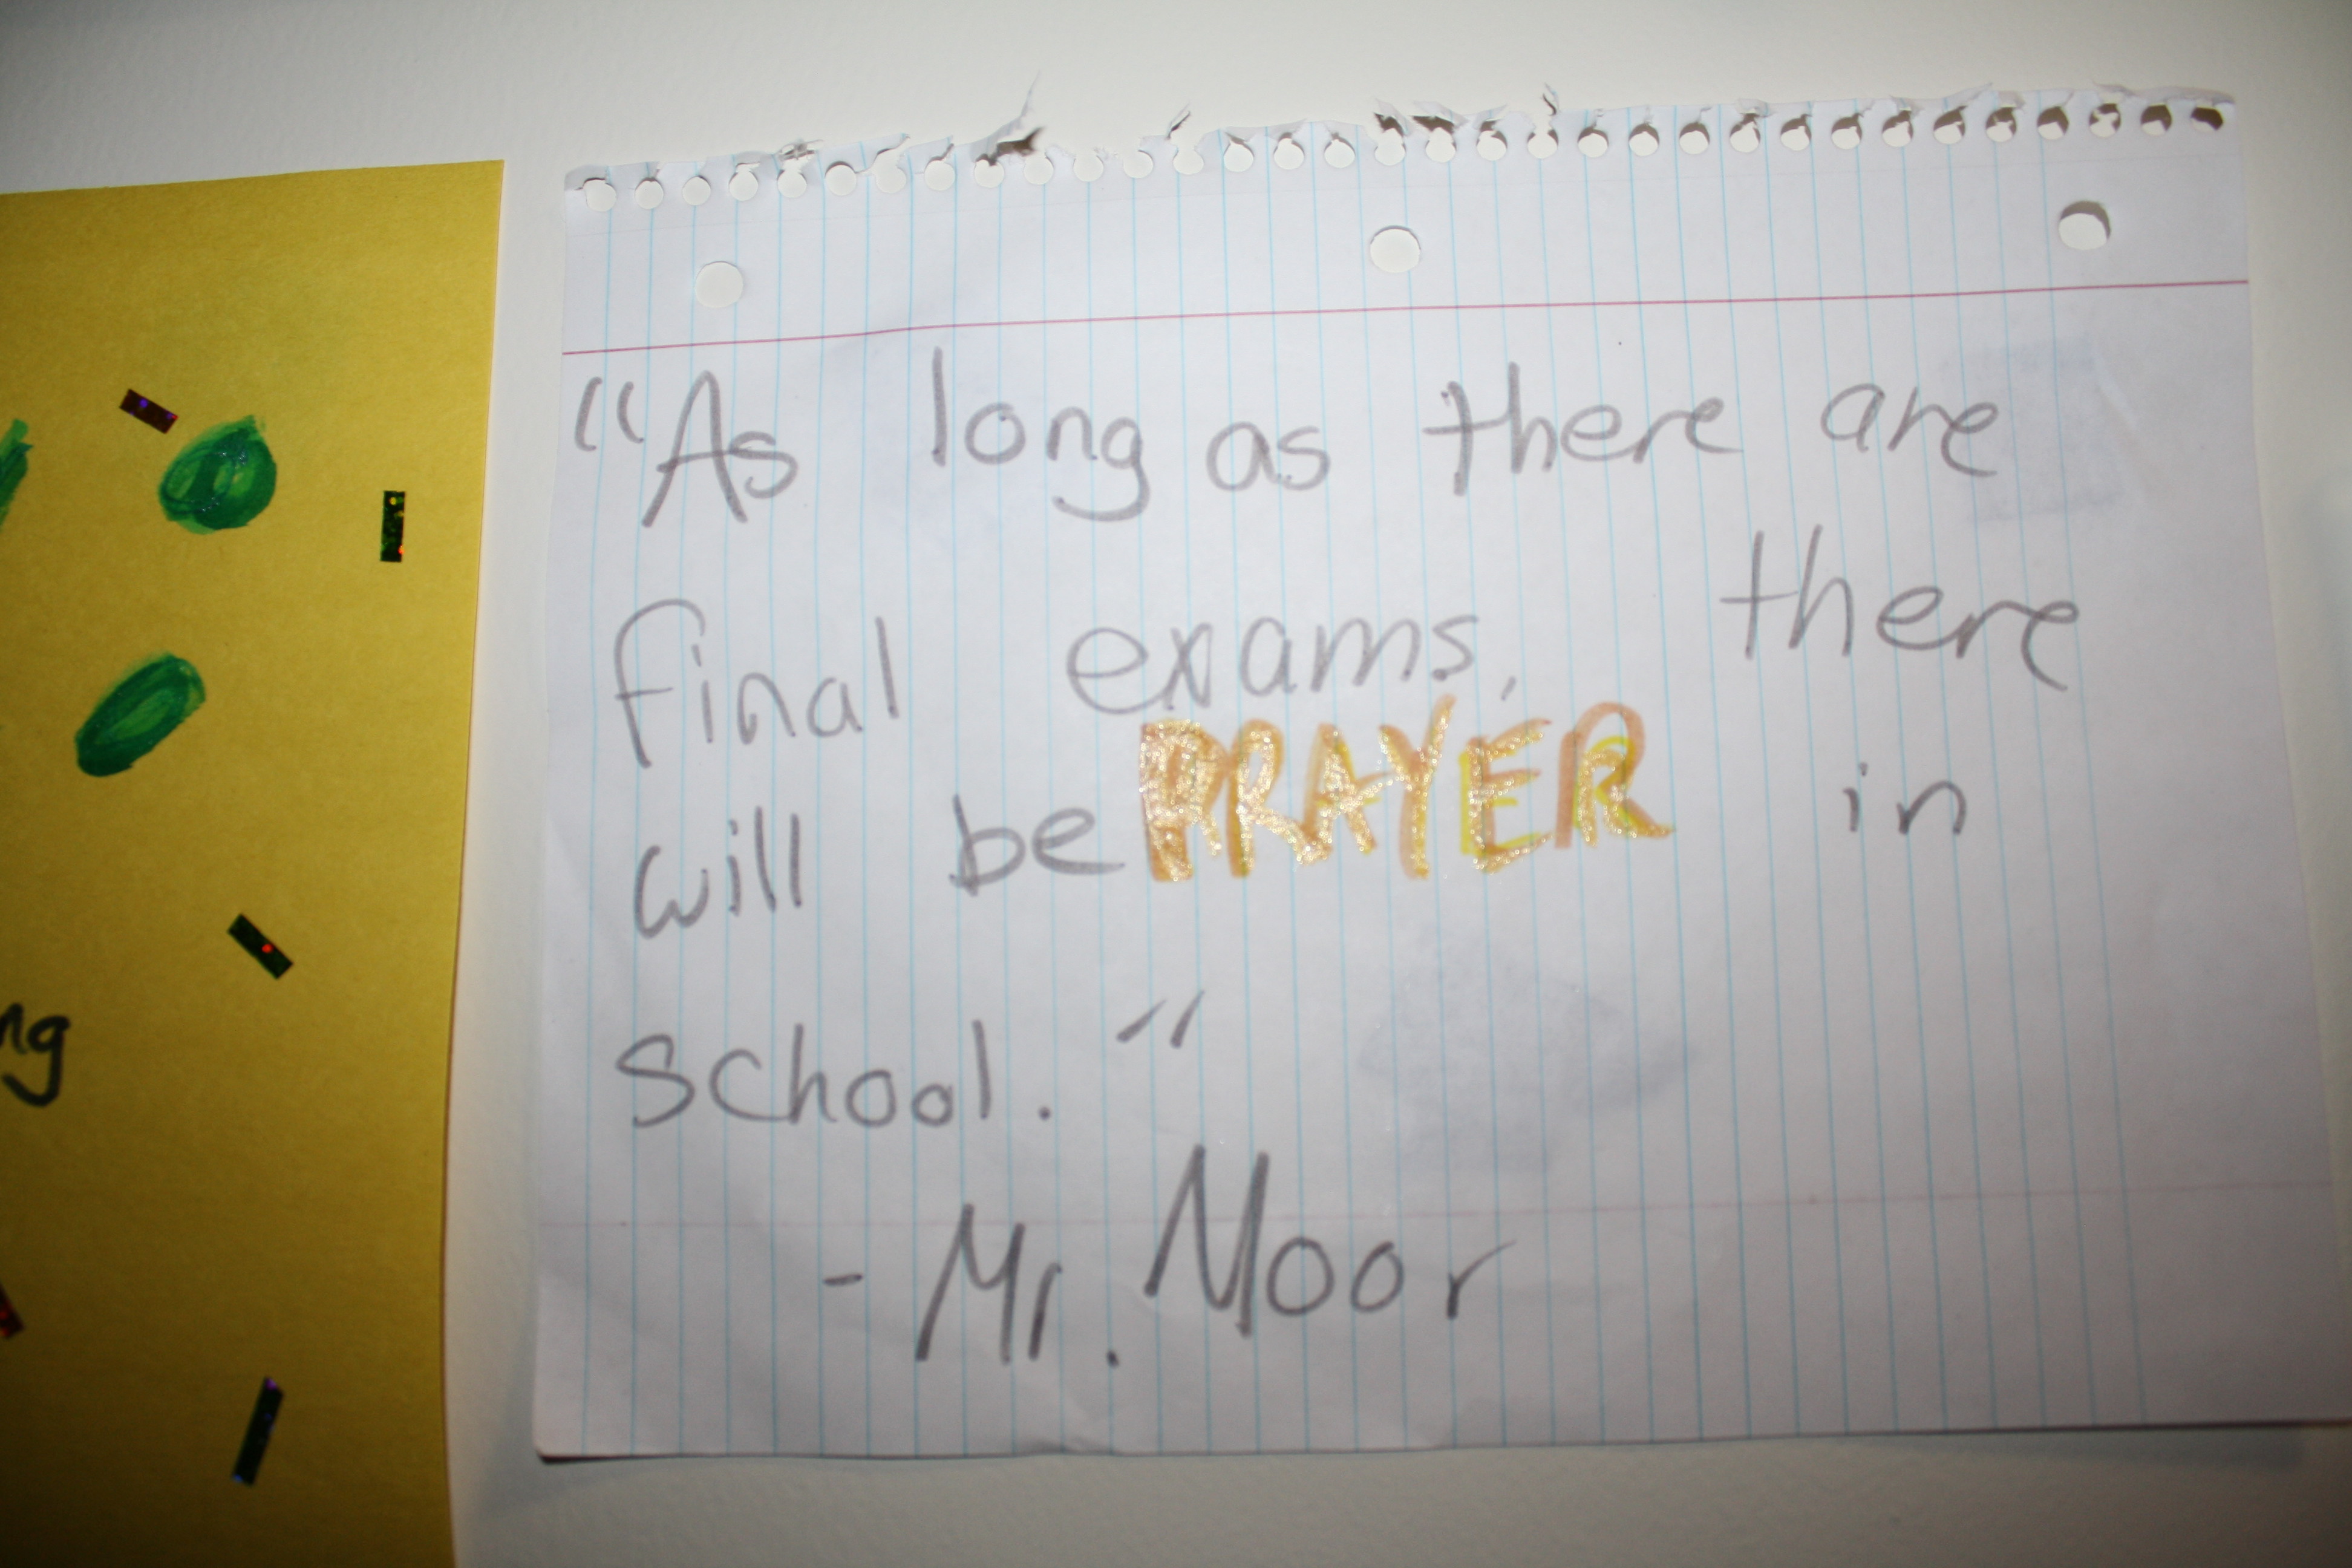 ng
"As long as there are
final exams, there
will be PRAYER in
school."
- Mr. Moor